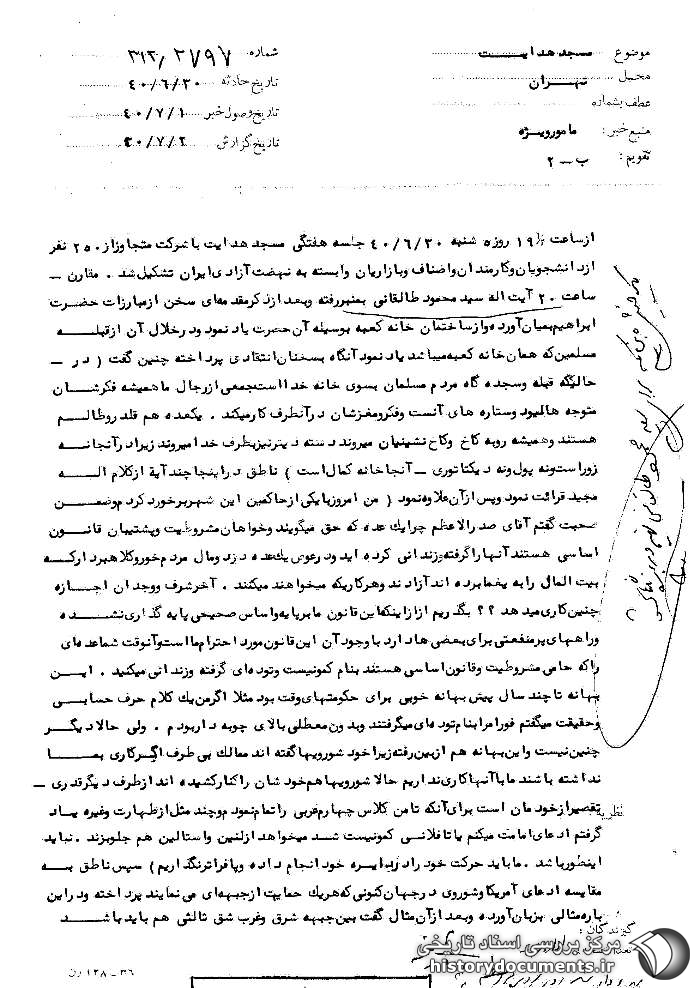 موضوع مسجد هدایت
محل تهران
عطف بشماره
منبع خبر: مامور ویژه
تقویم: ب - ۲
شماره ۳۱۲/۲۷۹۷
تاریخ حادثه ۴۰/۶/۳۰
تاریخ وصول خبر ۴۰/۷/۱
تاریخ گزارش ۴۰/۷/۲
از ساعت ۱۹ روز ۵ شنبه ۴۰/۶/۳۰ جلسه هفتگی مسجد هدایت با شرکت متجاوز از ۲۵۰ نفر
از دانشجویان و کارمندان و اصناف و بازاریان وابسته به نهضت آزادی ایران تشکیل شد . مقارن -
ساعت ۲۰ آیت اله سید محمود طالقانی بمنبر رفته و بعد از ذکر مقدمه ای سخن از مبارزات حضرت
ابراهیم بمیان آورده و از ساختمان خانه کعبه بوسیله آن حضرت یاد نمود و در خلال آن از قبله
مسلمین که همان خانه کعبه میباشد یاد نمود آنگاه بسخنان انتقادی پرداخته چنین گفت ( در -
حالیکه قبله و سجده گاه مردم مسلمان بسوی خانه خدا است جمعی از رجال ما همیشه فکرشان
متوجه هالیود و ستاره های آنست و فکر و مغزشان در آنطرف کار میکند . یکعده هم قلدر و ظالم
هستند و همیشه رو به کاخ و کاخ نشینیان میروند دسته دیگر نیز بطرف خدا میروند زیرا در آنجا نه
زور است و نه پول و نه دیکتاتوری - آنجا خانه کمال است ) ناطق در اینجا چند آیه از کلام اله
مجید قرائت نمود و پس از آن علاوه نمود ( من امروز با یکی از حاکمین این شهر برخورد کردم و ضمن
صحبت گفتم آقای صدر الاعظم چرا یک عده که حق میگویند و خواهان مشروطیت و پشتیبان قانون
اساسی هستند آنها را گرفته و زندانی کرده اید و در عوض یک عده دزد و مال مردم خور و کلاهبردار که
بیت المال را به یغما برده اند آزادند و هر کاریکه میخواهند میکنند . آخر شرف و وجدان اجازه
چنین کاری میدهد ؟؟ بگذریم از اینکه این قانون ما بر پایه و اساس صحیحی پایه گذاری نشده
و راههای پر منفعتی برای بعضی ها دارد با وجود آن این قانون مورد احترام ما است و آنوقت شما عده ای
را که حامی مشروطیت و قانون اساسی هستند بنام کمونیست و توده ای گرفته و زندانی میکنید . این
بهانه تا چند سال پیش بهانه خوبی برای حکومتهای وقت بود مثلا اگر من یک کلام حرف حسابی
و حقیقت میگفتم فورا مرا بنام توده ای میگرفتند و بدون معطلی بالای چوبه دار بودم . ولی حالا دیگر
چنین نیست و این بهانه هم از بین رفته زیرا خود شورویها گفته اند ممالک بی طرف اگر کاری بما
نداشته باشند ما با آنها کاری نداریم حالا شورویها هم خودشان را کنار کشیده اند از طرف دیگر قدری -
تقصیر از خودمان است برای آنکه تا من کلاس چهارم عربی را تمام نمودم و چند مثل از طهارت و غیره یاد
گرفتم ادعای امامت میکنم یا تا فلانی کمونیست شد میخواهد از لنین و استالین هم جلو بزند . نباید
اینطور باشد . ما باید حرکت خود را در دایره خود انجام داده و پا فراتر نگذاریم ) سپس ناطق به
مقایسه ادعای آمریکا و شوروی در جهان کنونی که هر یک حمایت از جبهه ای می نمایند پرداخته و در این
باره مثالی بزبان آورده و بعد از آن مثال گفت بین جبهه شرق و غرب شق ثالثی هم باید باشد
نظریه
گیرندگان :
۳۶ - ۱۲۸ رن
مرکز بررسی اسناد تاریخی
historydocuments.ir